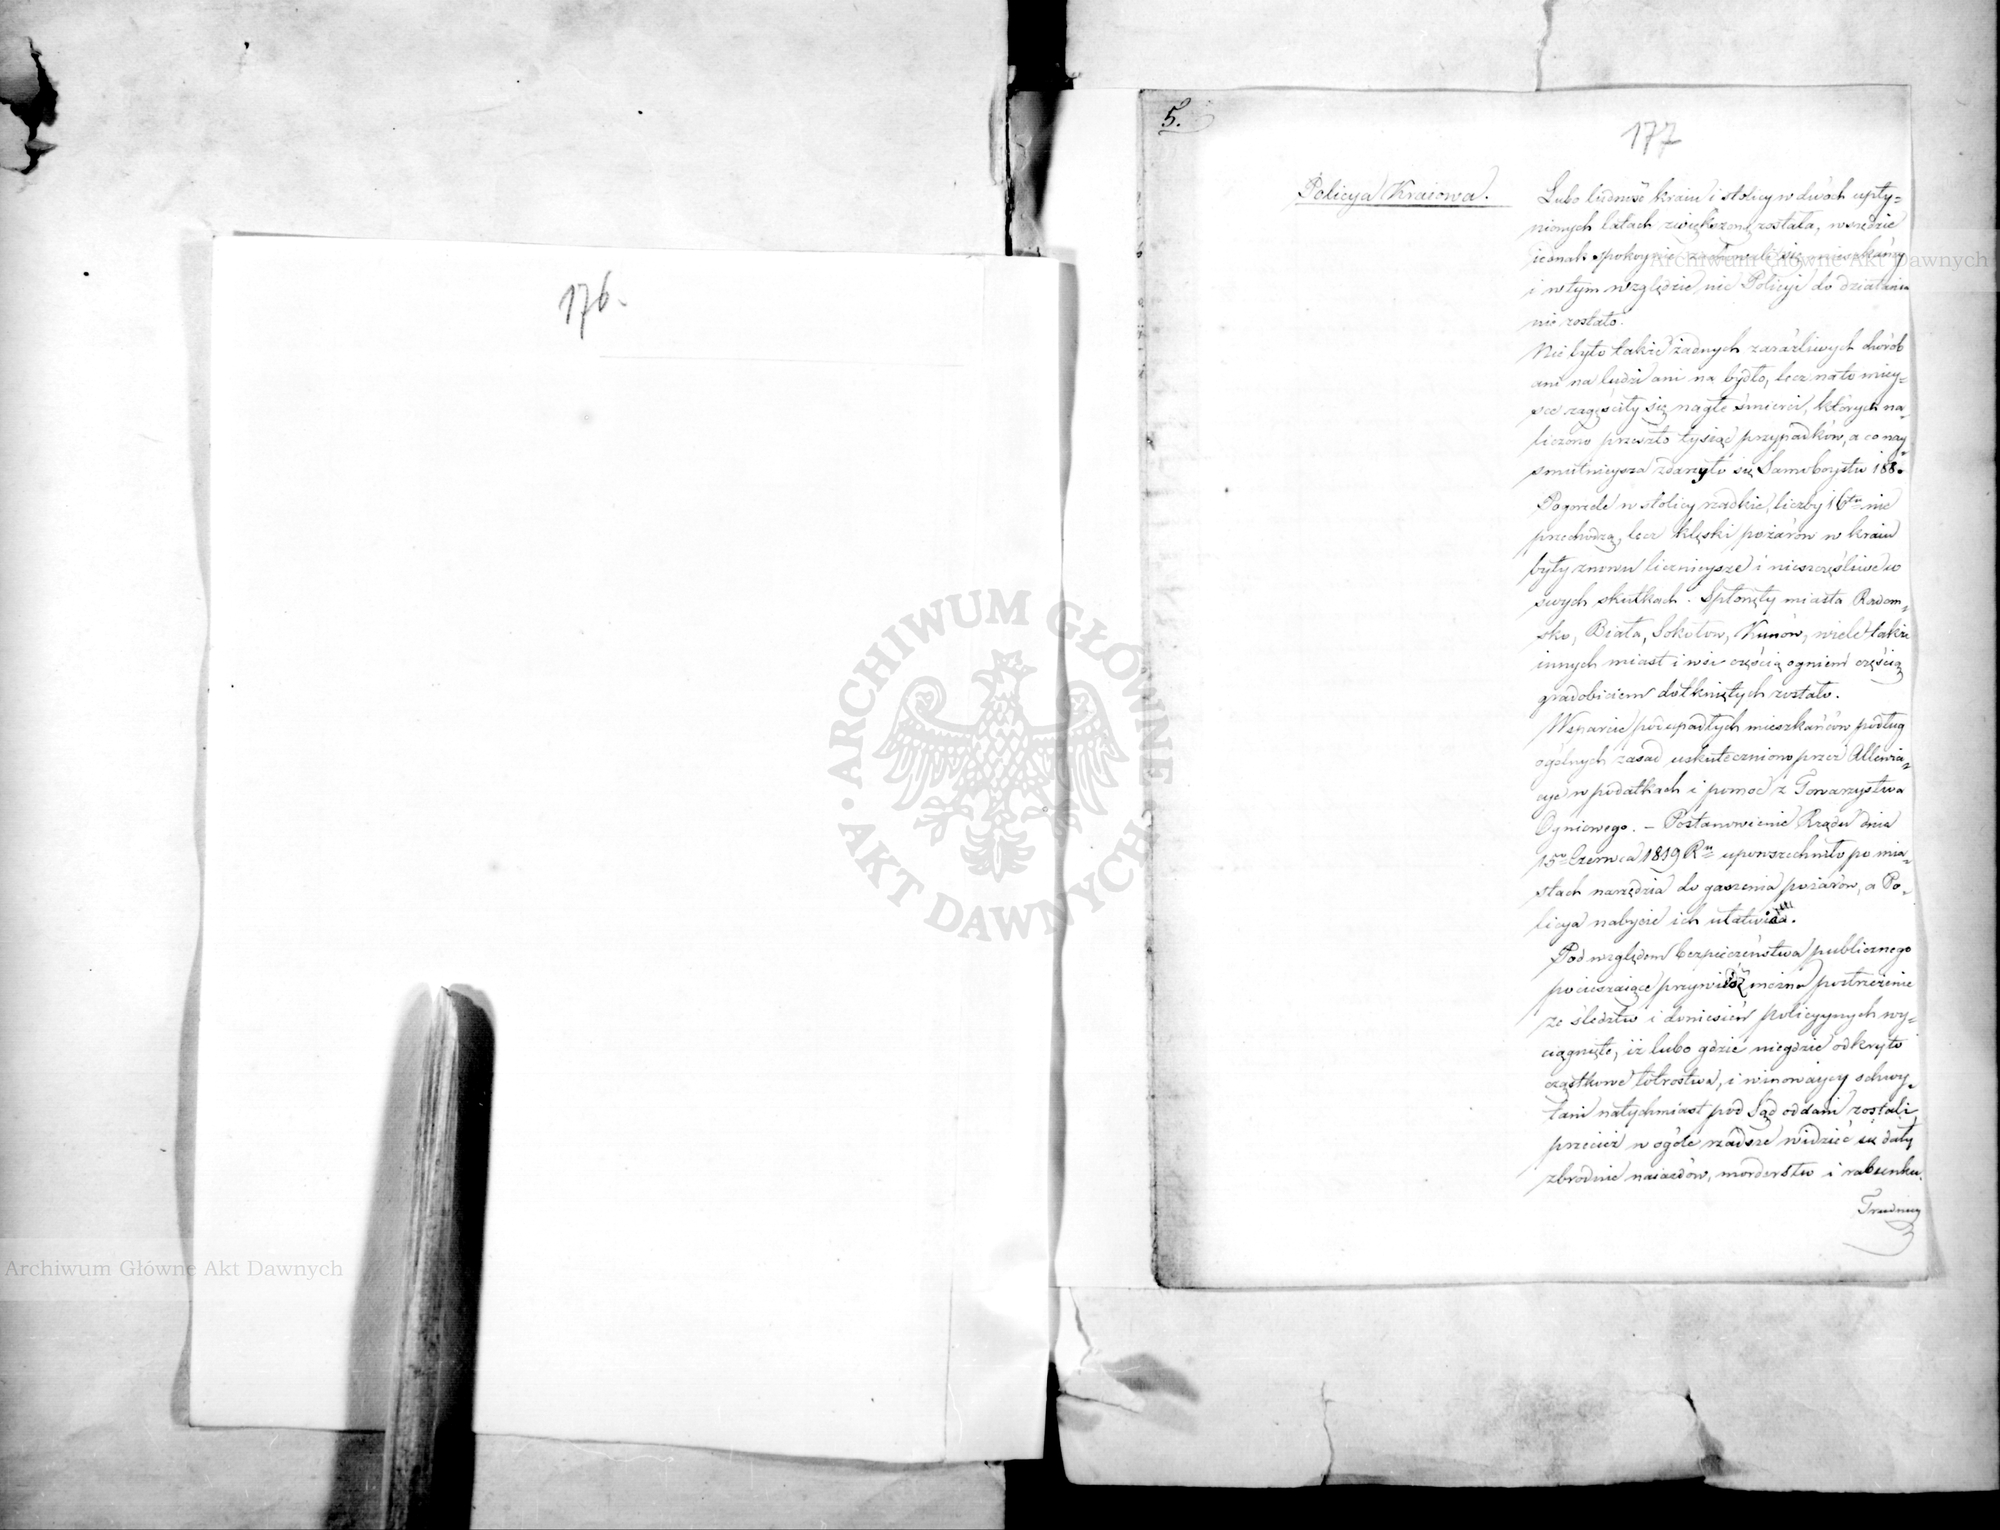 176.
5.
177
Policyja Kraiowa.
Lubo ludność kraiu i stolicy w dwóch upły=
nionych latach zwiększoną została, wszędzie
iednak spokoynie się mieszkańcy
i w tym względzie nic Policyi do działania
nie zostało.
Nie było także żadnych zaraźliwych chorób
ani na ludzi ani na bydło, lecz na to miey=
sce zagęściły się nagłe śmierci, których na=
liczono przeszło tysiąc przypadków, a co nay=
smutnieysza zdarzyło się Samobóystw 188.
Pogorzele w stolicy rzadkie, liczby 16tu nie
przechodzą, lecz klęski pożarów w kraiu
były znowu licznieysze i nieszczęśliwe w
swych skutkach. Spłonęły miasta Radom=
sko, Biała, Sokołow, Kunów, wiele także
innych miast i wsi częścią ogniem częścią
gradobiciem dotkniętych zostało.
Wsparcie podupadłych mieszkańców podług
ogólnych zasad uskuteczniono przez Allewia=
cye w podatkach i pomoc z Towarzystwa
Ogniowego. – Postanowienie Rządu dnia
15o Czerwca 1819 Ru upowszechniło po mia=
stach narzędzia do gaszenia pożarów, a Po=
licyja nabycie ich ułatwia.
Pod względem bezpieczeństwa publicznego
pocieszaiące przywieść można postrzeżenie
ze śledztw i doniesień policyynych wy=
ciągnięte, iż lubo gdzie niegdzie odkryto
cząstkowe łotrostwa, i winowaycy schwy=
tani natychmiast pod Sąd oddani zostali,
przecież w ogóle rzadsze widzieć się dały
zbrodnie naiazdów, morderstw i rabunku.
Trudniey
ARCHIWUM GŁÓWNE AKT DAWNYCH
Archiwum Główne Akt Dawnych
Archiwum Główne Akt Dawnych